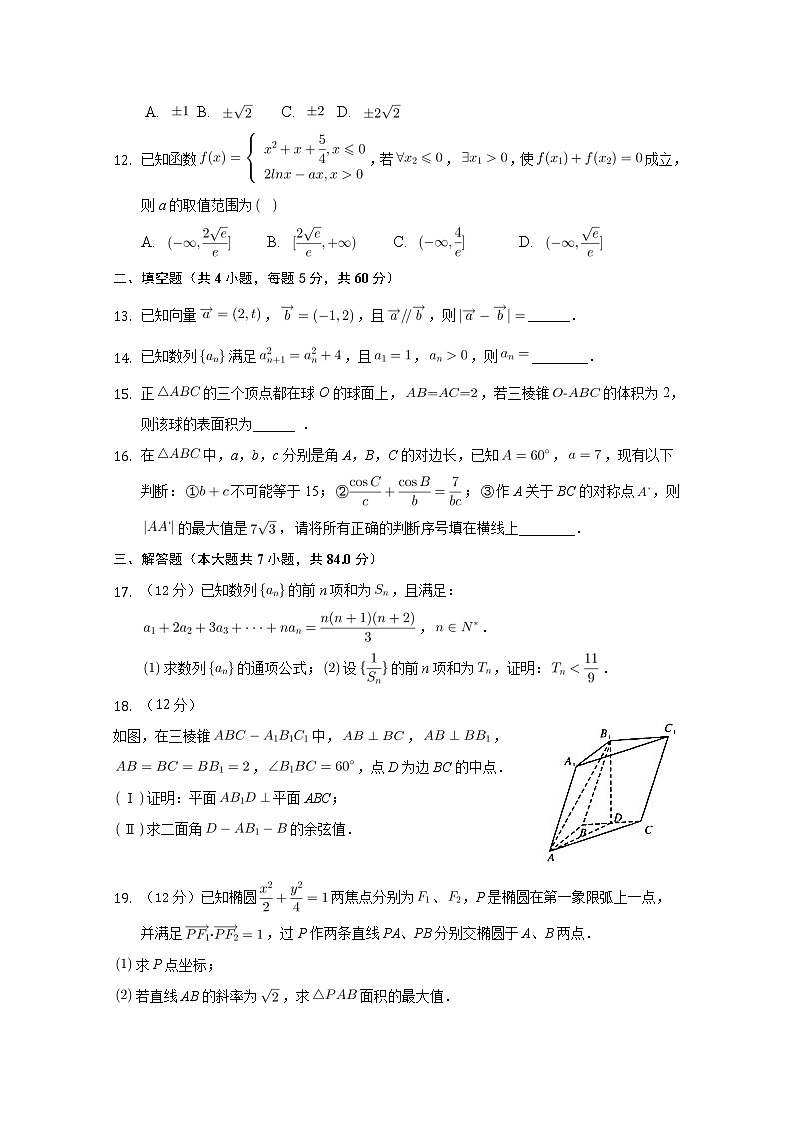 A. ±1 B. ±√2 C. ±2 D. ±2√2
12. 已知函数f(x) = { x²+x+5/4, x⩽0 ; 2lnx−ax, x>0 ,若∀x₂⩽0, ∃x₁>0,使f(x₁)+f(x₂)=0成立,
则a的取值范围为( )
A. (−∞, 2√e/e] B. [2√e/e, +∞) C. (−∞, 4/e] D. (−∞, √e/e]
二、填空题(共4小题,每题5分,共60分)
13. 已知向量a⃗=(2,t), b⃗=(−1,2),且a⃗//b⃗,则|a⃗−b⃗|=______.
14. 已知数列{aₙ}满足a²ₙ₊₁=a²ₙ+4,且a₁=1, aₙ>0,则aₙ=________.
15. 正△ABC的三个顶点都在球O的球面上, AB=AC=2,若三棱锥O-ABC的体积为2,
则该球的表面积为______ .
16. 在△ABC中,a,b,c分别是角A,B,C的对边长,已知A=60°, a=7,现有以下
判断:①b+c不可能等于15;②cosC/c+cosB/b=7/bc;③作A关于BC的对称点A',则
|AA'|的最大值是7√3,请将所有正确的判断序号填在横线上________.
三、解答题(本大题共7小题,共84.0分)
17. (12分)已知数列{aₙ}的前n项和为Sₙ,且满足:
a₁+2a₂+3a₃+···+naₙ=n(n+1)(n+2)/3, n∈N*.
(1)求数列{aₙ}的通项公式;(2)设{1/Sₙ}的前n项和为Tₙ,证明:Tₙ<11/9.
18. (12分)
如图,在三棱锥ABC−A₁B₁C₁中, AB⊥BC, AB⊥BB₁,
AB=BC=BB₁=2, ∠B₁BC=60°,点D为边BC的中点.
(Ⅰ)证明:平面AB₁D⊥平面ABC;
(Ⅱ)求二面角D−AB₁−B的余弦值.
A₁ B₁ C₁
B D C
A
19. (12分)已知椭圆x²/2+y²/4=1两焦点分别为F₁、F₂,P是椭圆在第一象限弧上一点,
并满足PF₁⃗·PF₂⃗=1,过P作两条直线PA、PB分别交椭圆于A、B两点.
(1)求P点坐标;
(2)若直线AB的斜率为√2,求△PAB面积的最大值.